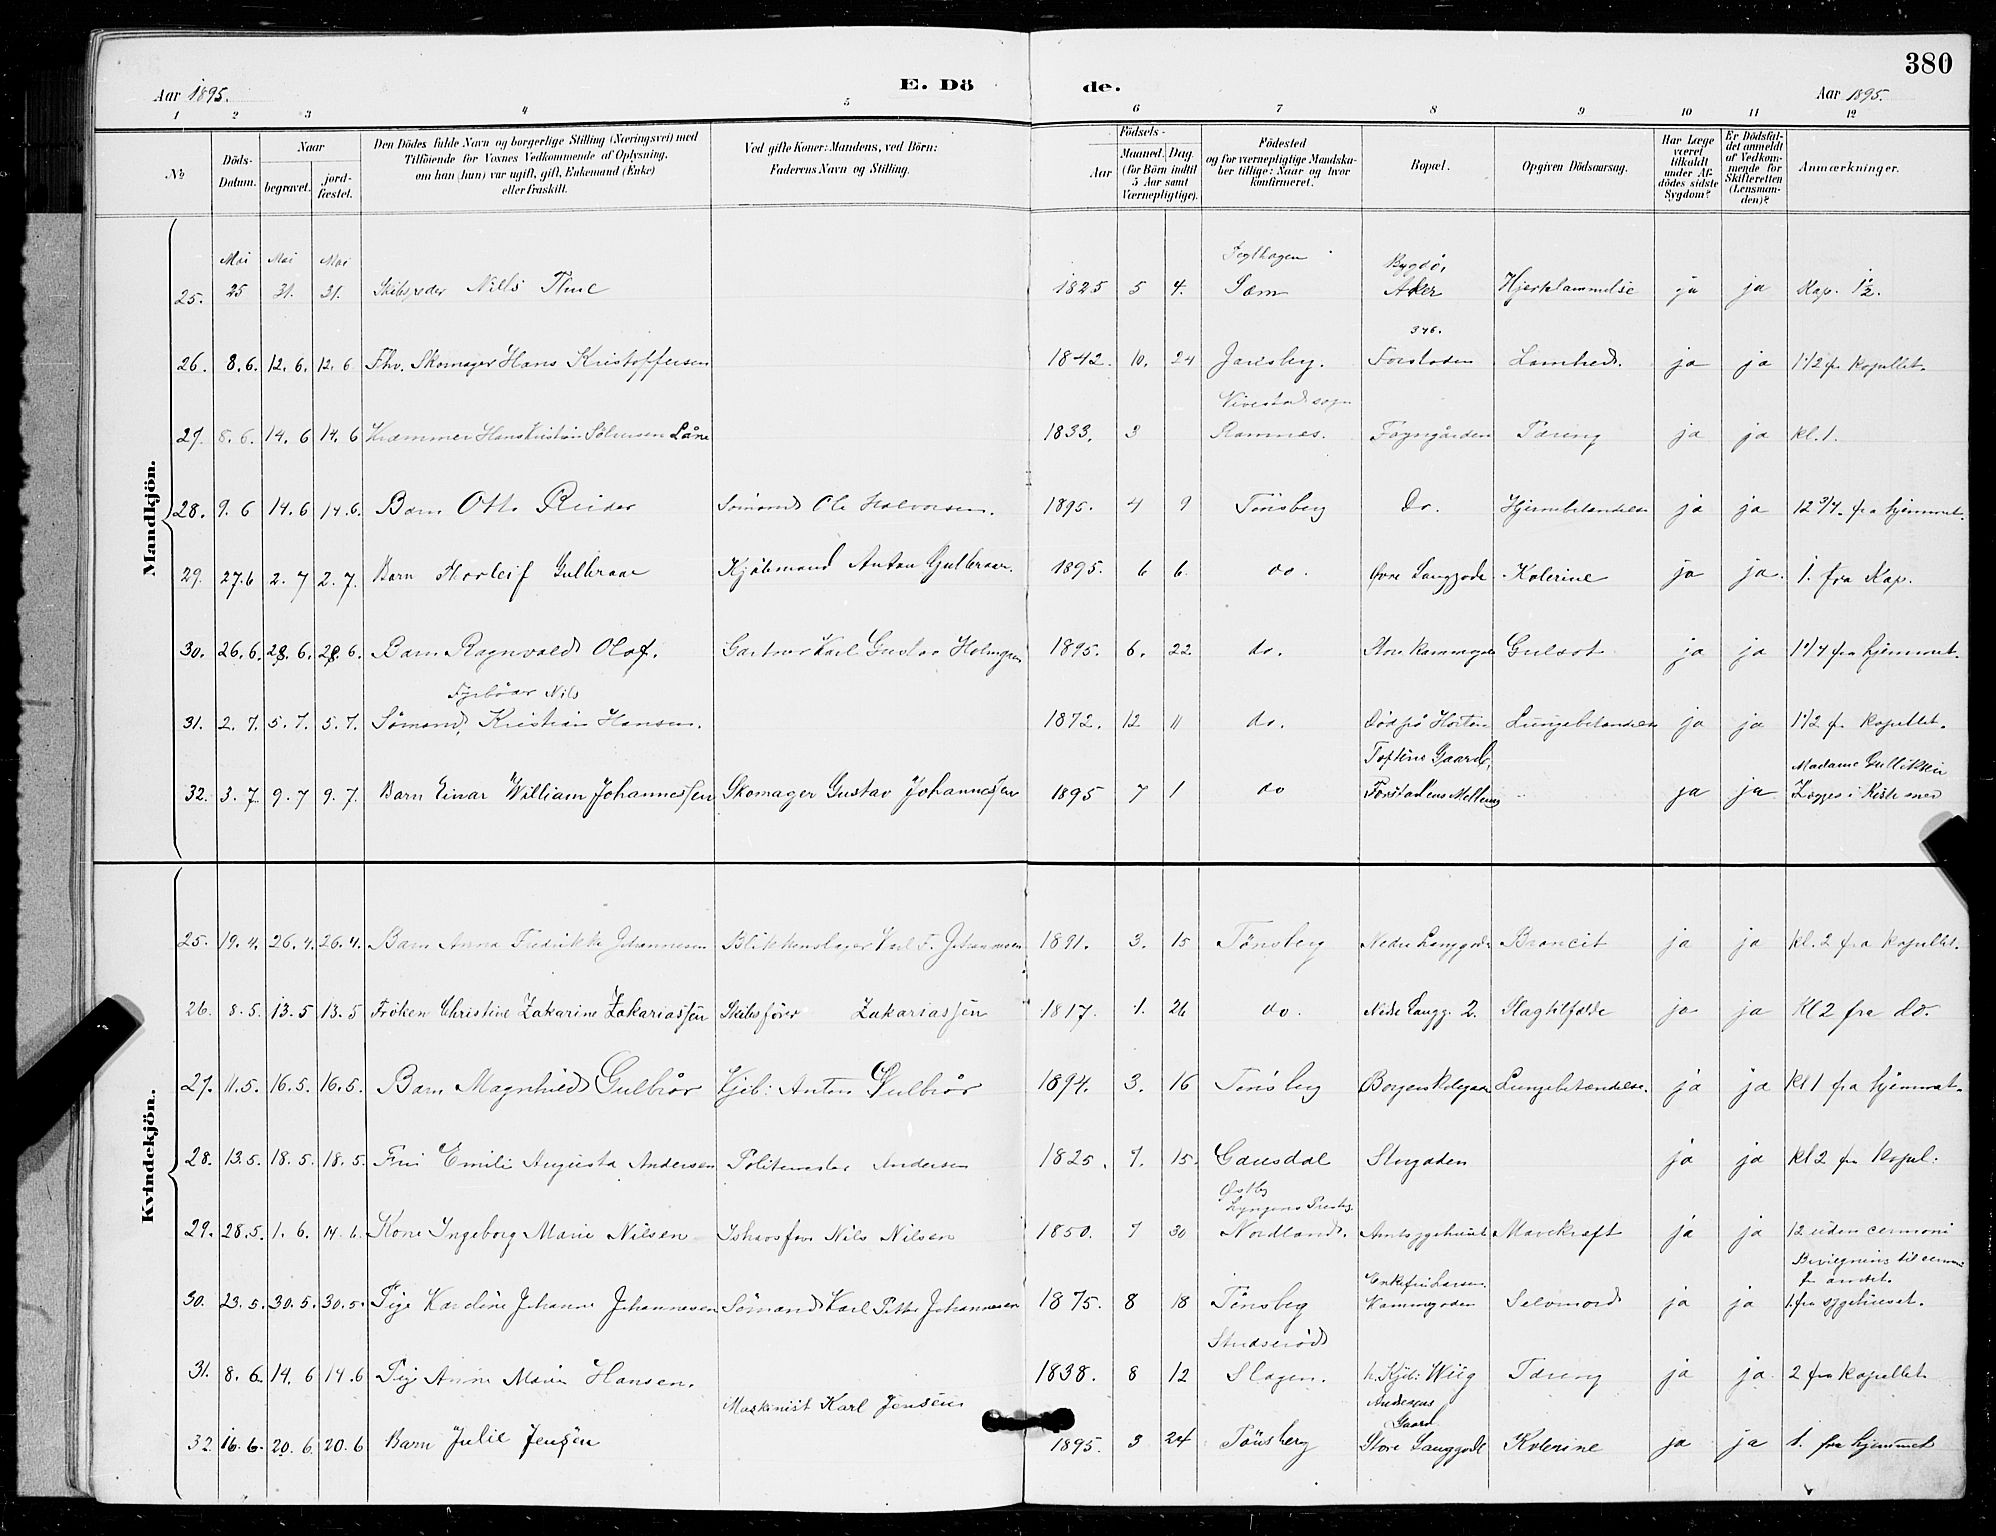 380
Aar 1895. E. Dö de. Aar 1895.
1 2 3 4 5 6 7 8 9 10 11 12
№
Döds-Datum.
Naar
begravet.
jord-fæstet.
Den Dödes fulde Navn og borgerlige Stilling (Næringsvei) med
Tilföiende for Voxnes Vedkommende af Oplysning,
om han (hun) var ugift, gift, Enkemand (Enke)
eller fraskilt.
Ved gifte Koner: Mandens, ved Börn:
Faderens Navn og Stilling.
Födsels-
Aar
Maaned. Dag.
(for Börn indtil
5 Aar samt
Værnepligtige).
Födested
og for værnepligtige Mandska-
ber tillige: Naar og hvor
konfirmeret.
Bopæl.
Opgiven Dödsaarsag.
Har Læge
været
tilkaldt
under Af-
dödes sidste
Sygdom?
Er Dödsfal-
det anmeldt
af Vedkom-
mende for
Skifteretten
(Lensman-
den)?
Anmærkninger.
Mandkjön.
Mai Mai Mai Teglhagen Bygdö,
25. 25 31. 31. Skibsreder Nills Thue 1825 5 4. Sæm Aker Hjertelammelse ja ja Kap. 1½.
346.
26. 8.6. 12.6. 12.6 Fhv. Skomager Hans Kristoffersen 1842. 10. 24 Jarlsberg. Forstaden Lamhed. ja ja 1½ fr kapellet.
Vivestad sogn
27. 8.6. 14.6 14.6 Kræmmer Hans Kristian Sörensen Låne 1833. 3 Ramnæs. Fayegården Tæring ja ja kl. 1.
28. 9.6 14.6 14.6. Barn Otto Reidar Sömand Ole Halvorsen. 1895. 4 9 Tönsberg Do. Hjernebetændelse ja ja 12 3/4. fra hjemmet.
29. 27.6 2.7 2.7. Barn Thorleif Gulbraar Kjöbmand Anton Gulbraar. 1895. 6 6 do. Övre Langgade Kolerine ja ja. 1. fra Kap.
30. 26.6. 28.6. 28.6. Barn Ragnvald Olaf. Gartner Karl Gustav Holmgren 1895. 6. 22 do. Store Kammegade Gulsot ja ja 1¼ fra hjemmet.
Fyrböder Nils
31. 2.7. 5.7. 5.7. Sömand, Kristian Hansen. 1872. 12 11 do. Död på Horten Lungebetændelse ja ja 1½ fr kapellet.
Toftene Gaard, Madame Gullikken
32. 3.7 9.7 9.7. Barn Einar William Johannessen Skomager Gustav Johannessen 1895 7 1 do Forstadens Mellemg ja ja Lægges i Kiste med
Kvindekjön.
25. 19.4. 26.4. 26.4. Barn Anna Fredrikke Johannesen Blikkenslager Karl F. Johannesen 1891. 3. 15 Tönsberg Nedre Langgade Broncit ja ja kl. 2 fra kapellet.
26. 8.5. 13.5 13.5 Fröken Christine Zakarine Zakariassen Skibsförer Zakariassen 1817. 1. 26 do. Nedre Langg. 2. Slagtilfælde ja ja Kl 2 fra do.
27. 11.5. 16.5. 16.5. Barn Magnhild Gulbrår Kjöb: Anton Gulbrår 1894. 3. 16 Tönsberg Borgerskolegaden Lungebetændelse. ja ja kl 1 fra hjemmet.
28. 13.5. 18.5. 18.5. Fru Emili Augusta Andersen Politimester Andersen 1825. 9. 15. Gausdal Storgaden ja ja kl 2 fr kapel:
Østby
Lyngens Præstg.
29. 28.5. 1.6. 14.6. Kone Ingeborg Marie Nilsen Ishavsfar Nils Nilsen 1850. 9 30 Nordland. Amtsygehuset Mavekræft ja ja 12 uden cermoni
Enkefru Larsen
30. 23.5. 30.5. 30.5. Pige Karoline Johanne Johannesen Sömand Karl Petter Johannesen 1875. 8 18 Tönsberg Kammegaden Selvmord ja ja 1. fra sygehuset.
Studseröd
31. 8.6. 14.6 14.6 Pige Anne Marie Hansen. 1838. 8 12 Slagen. h. Kjöb: Wiig Tæring ja ja 2 fra kapellet
Andersens
Gaard
Maskinist Karl Jensen
32 16.6. 20.6. 20.6 Barn Julie Jensen 1895. 3 24 Tönsberg Store Langgade Kolerine ja ja 1. fra hjemmet